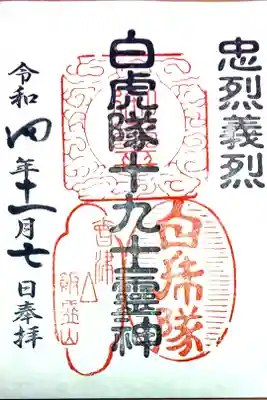 忠烈義烈
白虎隊十九士靈神
白虎隊
會津
飯盛山
令和四年十一月七日奉拝